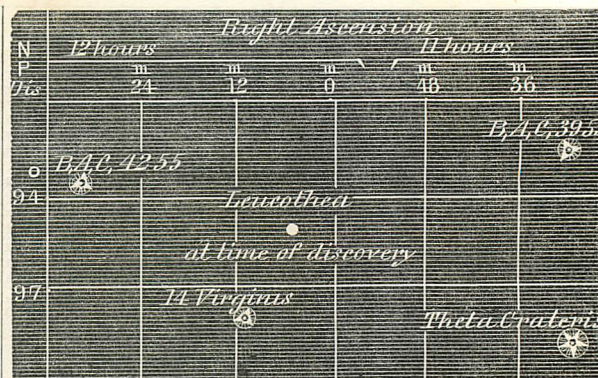 Right Ascension
N 12 hours 11 hours
P m m m m m
Dis 24 12 0 48 36
B,A,C, 395
o B,A,C, 42 55
94 Leucothea
at time of discovery
97 14 Virginis
Theta Crateris